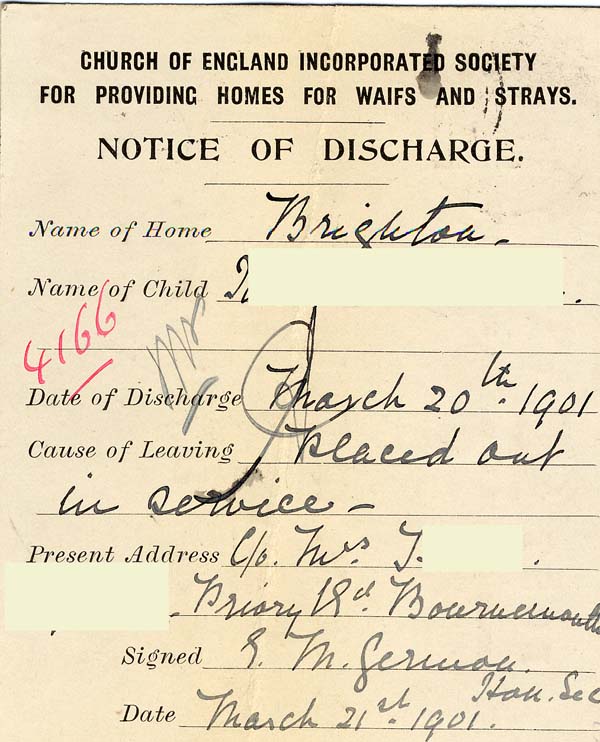 CHURCH OF ENGLAND INCORPORATED SOCIETY
FOR PROVIDING HOMES FOR WAIFS AND STRAYS.
NOTICE OF DISCHARGE.
Name of Home Brighton.
Name of Child
4166
Date of Discharge March 20th. 1901
Cause of Leaving Placed out
in service -
Present Address C/o. Mrs J.
Priory Rd. Bournemouth
Signed E. M. Germon.
Hon. Sec
Date March 21st. 1901.